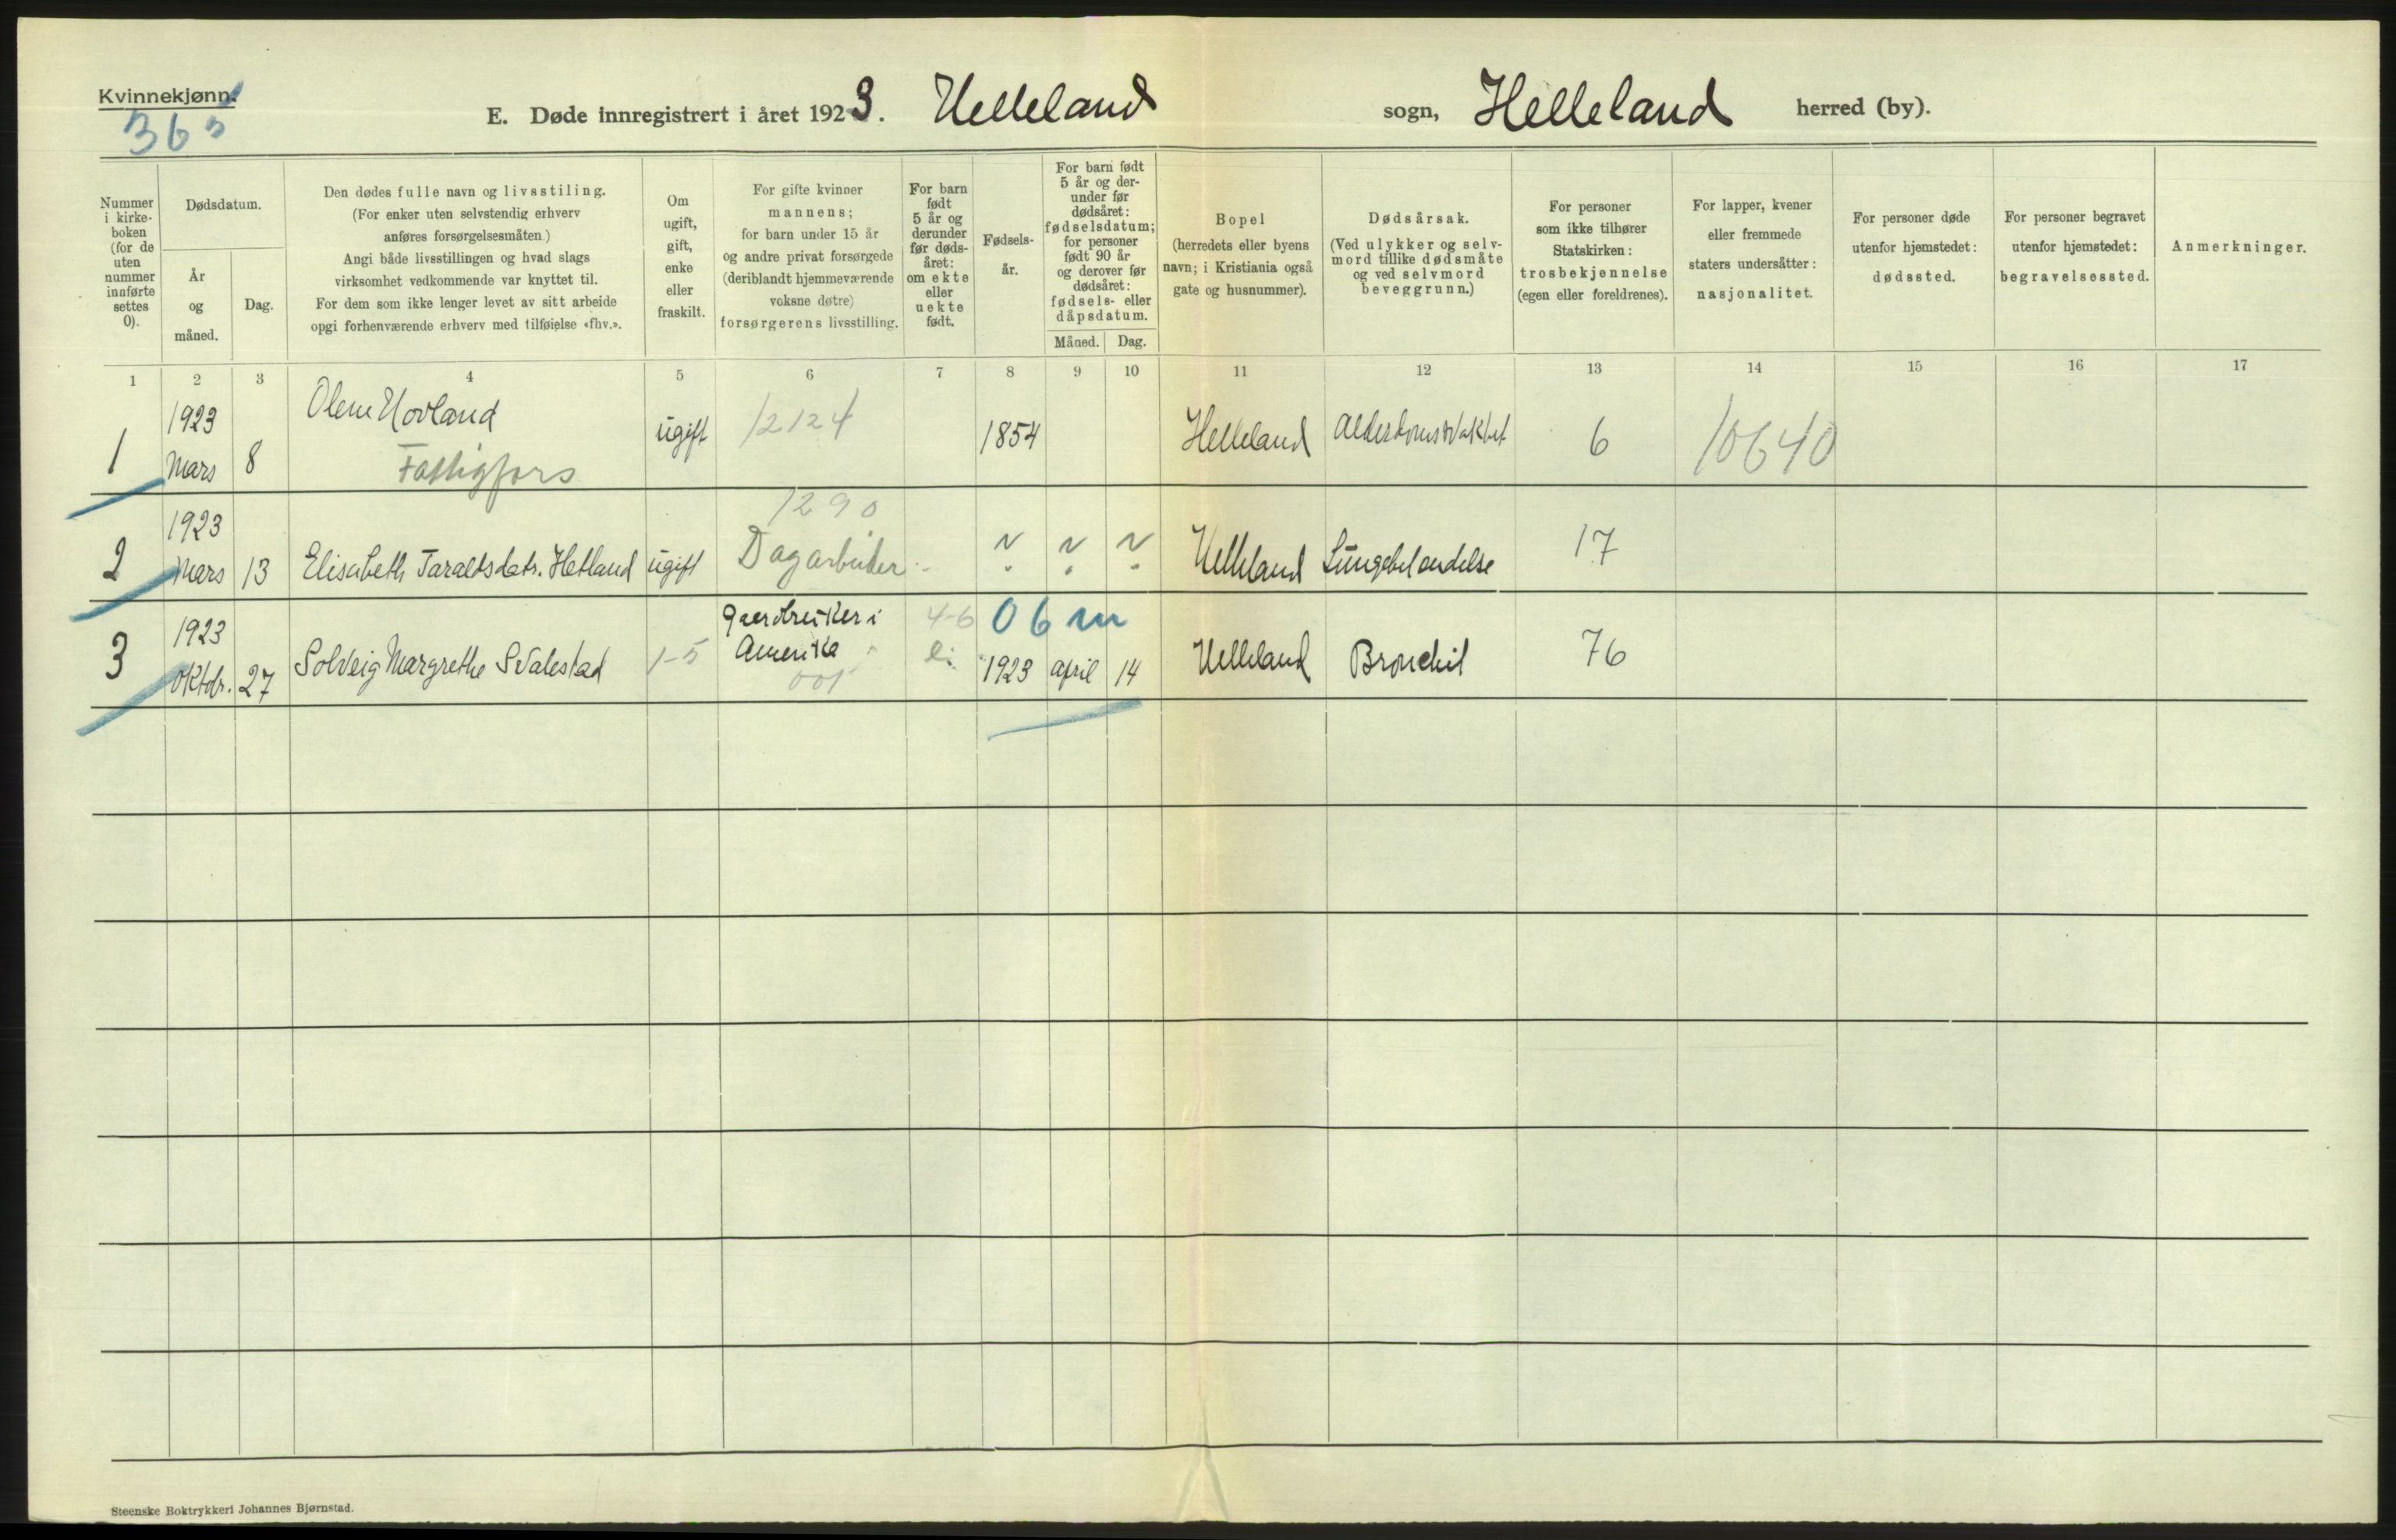 Kvinnekjønn.
36
E. Døde innregistrert i året 1923. Helleland sogn, Helleland herred (by).
Nummer i kirke-boken (for de uten nummer innførte settes 0).
Dødsdatum.
År og måned.
Dag.
Den dødes fulle navn og livsstiling.
(For enker uten selvstendig erhverv
anføres forsørgelsesmåten.)
Angi både livsstillingen og hvad slags
virksomhet vedkommende var knyttet til.
For dem som ikke lenger levet av sitt arbeide
opgi forhenværende erhverv med tilføielse «fhv.».
Om ugift, gift, enke eller fraskilt.
For gifte kvinner
mannens;
for barn under 15 år
og andre privat forsørgede
(deriblandt hjemmeværende
voksne døtre)
forsørgerens livsstilling.
For barn født 5 år og derunder før døds-året: om ekte eller uekte født.
Fødsels-år.
For barn født
5 år og der-
under før
dødsåret:
fødselsdatum;
for personer
født 90 år
og derover før
dødsåret:
fødsels- eller
dåpsdatum.
Måned. Dag.
Bopel
(herredets eller byens
navn; i Kristiania også
gate og husnummer).
Dødsårsak.
(Ved ulykker og selv-
mord tillike dødsmåte
og ved selvmord
beveggrunn.)
For personer
som ikke tilhører
Statskirken:
trosbekjennelse
(egen eller foreldrenes).
For lapper, kvener
eller fremmede
staters undersåtter:
nasjonalitet.
For personer døde
utenfor hjemstedet:
dødssted.
For personer begravet
utenfor hjemstedet:
begravelsessted.
Anmerkninger.
1 2 3 4 5 6 7 8 9 10 11 12 13 14 15 16 17
1 1923 Mars 8 Olene Hovland ugift 12124 1854 Helleland Alderdomssvakhet 6 10640
Fattigfors
1290
2 1923 Mars 13 Elisabeth Taraldsdatr. Hetland ugift Dagarbeider Helleland Lungebetendelse 17
3 1923 Oktbr. 27 Solveig Margrethe Svalestad 1-5 Gaardbruker i Amerika 001 4-6 06m 1923 april 14 Helleland Bronchit 76
Steenske Boktrykkeri Johannes Bjørnstad.